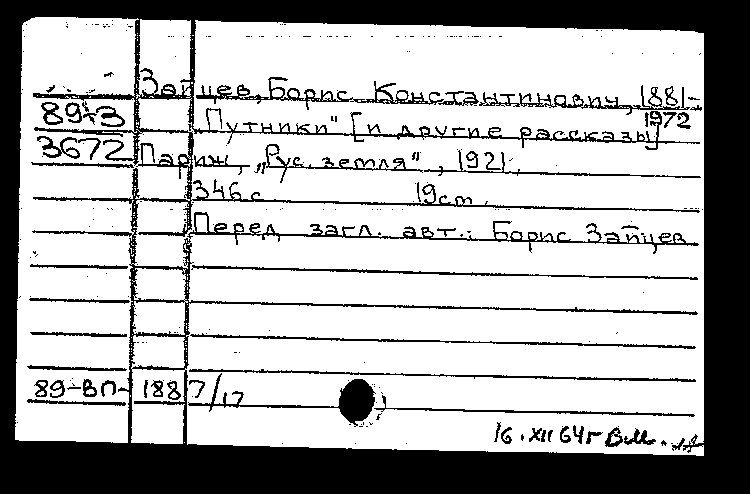 Зайцев, Борис Константинович, 1881-
1972
89-3
3672
„Путники" [и другие рассказы]
Париж, „Рус. земля", 1921.
346 с. 19 cm.
Перед загл. авт.: Борис Зайцев
89-ВП- 1887/17
16.XII 64г